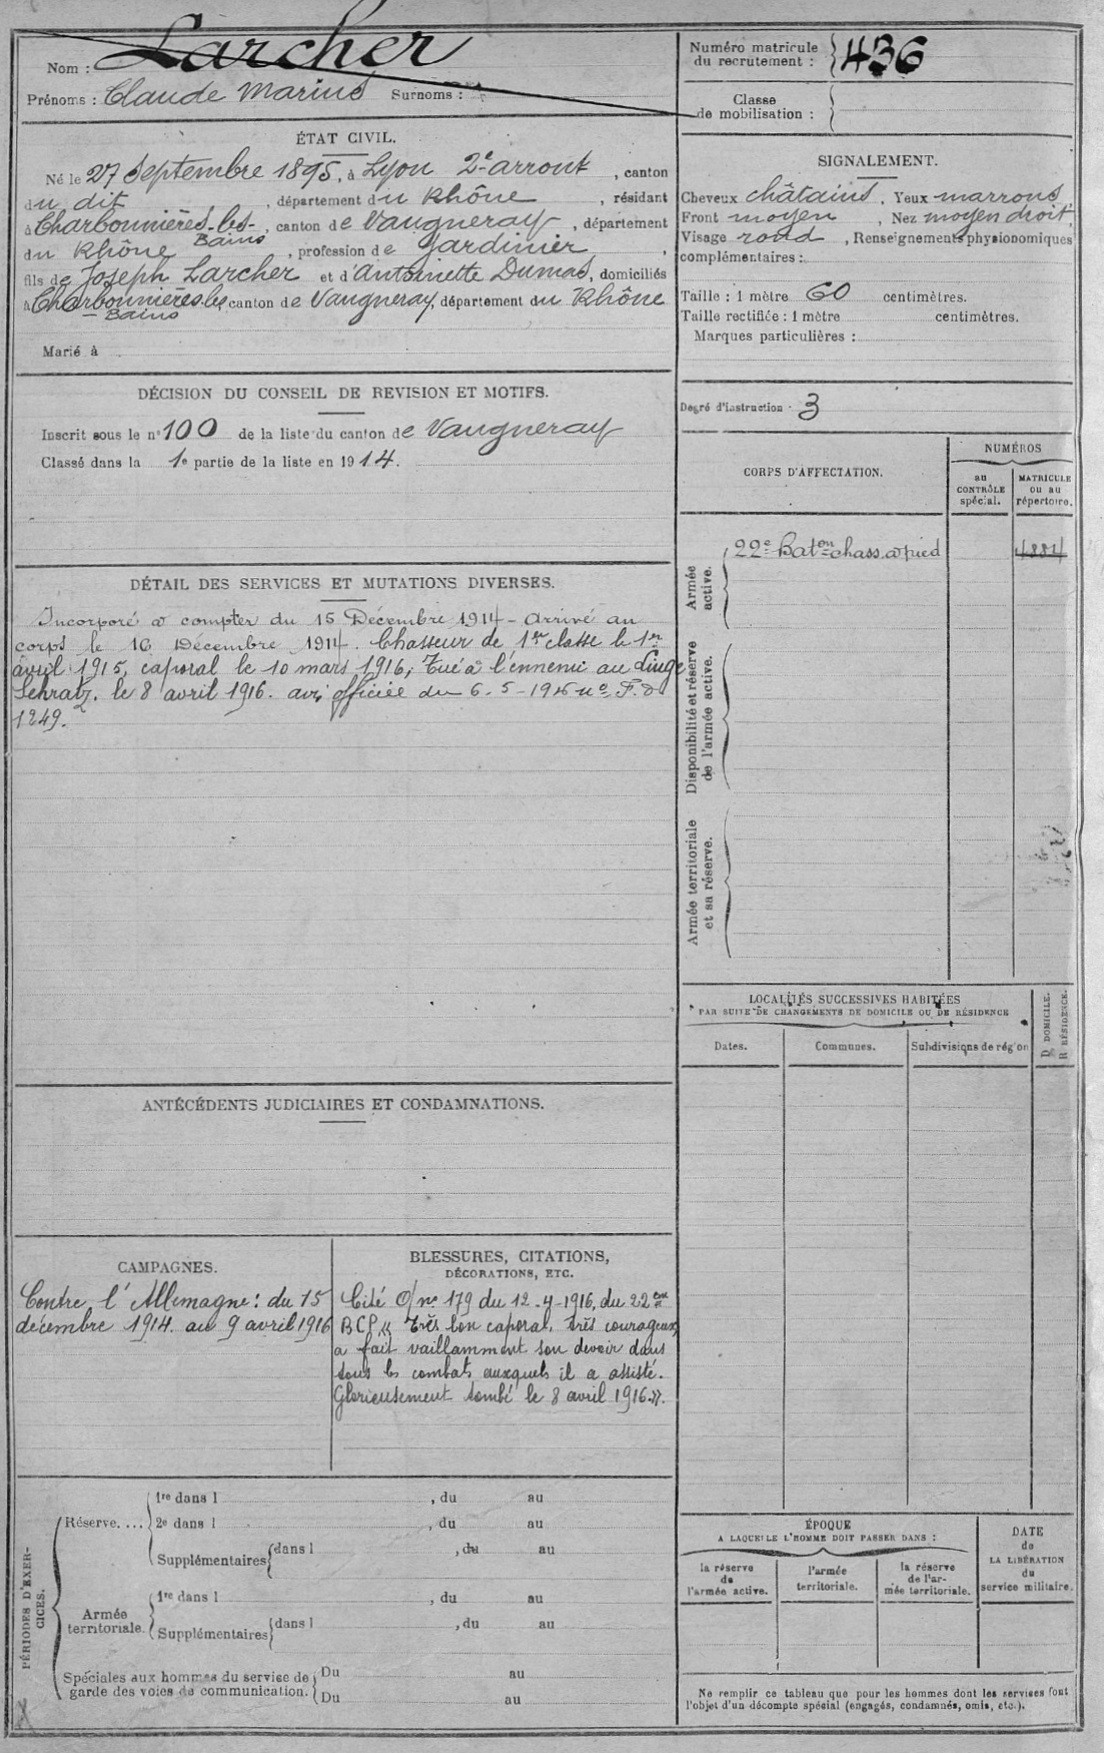 Nom : Larcher
Prénoms : Claude Marius Surnoms :
Numéro matricule
du recrutement : 436
Classe
de mobilisation :
ÉTAT CIVIL.
Né le 27 Septembre 1895, à Lyon 2e arront, canton
du dit, département du Rhône, résidant
à Charbonnières-les-, canton de Vaugneray, département
Bains
du Rhône, profession de Jardinier,
fils de Joseph Larcher et d'Antoinette Dumas, domiciliés
à Charbonnières les, canton de Vaugneray, département du Rhône
- Bains
Marié à
SIGNALEMENT.
Cheveux châtains, Yeux marrons,
Front moyen, Nez moyen droit,
Visage rond, Renseignements physionomiques
complémentaires :
Taille : 1 mètre 60 centimètres.
Taille rectifiée : 1 mètre centimètres.
Marques particulières :
DÉCISION DU CONSEIL DE REVISION ET MOTIFS.
Inscrit sous le n° 100 de la liste du canton de Vaugneray
Classé dans la 1e partie de la liste en 1914.
Degré d'instruction : 3
CORPS D'AFFECTATION.
NUMÉROS
au
CONTRÔLE
spécial.
MATRICULE
ou au
répertoire.
Armée
active.
22e Baton chass. à pied
4884
Disponibilité et réserve
de l'armée active.
Armée territoriale
et sa réserve.
DÉTAIL DES SERVICES ET MUTATIONS DIVERSES.
Incorporé à compter du 15 Décembre 1914 - arrivé au
corps le 16 Décembre 1914. Chasseur de 1re classe le 1er
avril 1915, caporal le 10 mars 1916, Tué à l'ennemi au Linge
le 8 avril 1916. avis officiel du 6-5-1916 no F.D
1249.
LOCALITÉS SUCCESSIVES HABITÉES
PAR SUITE DE CHANGEMENTS DE DOMICILE OU DE RÉSIDENCE
Dates.
Communes.
Subdivisions de région
D DOMICILE.
R RÉSIDENCE.
ANTÉCÉDENTS JUDICIAIRES ET CONDAMNATIONS.
CAMPAGNES.
Contre l'Allemagne : du 15
décembre 1914 au 9 avril 1916
BLESSURES, CITATIONS,
DÉCORATIONS, ETC.
Cité O/ no 179 du 12-4-1916, du 22eme
BCP « Très bon caporal, très courageux,
a fait vaillamment son devoir dans
tous les combats auxquels il a assisté.
Glorieusement tombé le 8 avril 1916 ».
PÉRIODES D'EXER-
CICES.
Réserve....
1re dans l , du au
2e dans l , du au
Supplémentaires dans l , du au
Armée
territoriale.
1re dans l , du au
Supplémentaires dans l , du au
Spéciales aux hommes du service de
garde des voies de communication.
Du au
Du au
ÉPOQUE
A LAQUELLE L'HOMME DOIT PASSER DANS :
la réserve
de
l'armée active.
l'armée
territoriale.
la réserve
de l'ar-
mée territoriale.
DATE
de
LA LIBÉRATION
du
service militaire.
Ne remplir ce tableau que pour les hommes dont les services font
l'objet d'un décompte spécial (engagés, condamnés, omis, etc.).